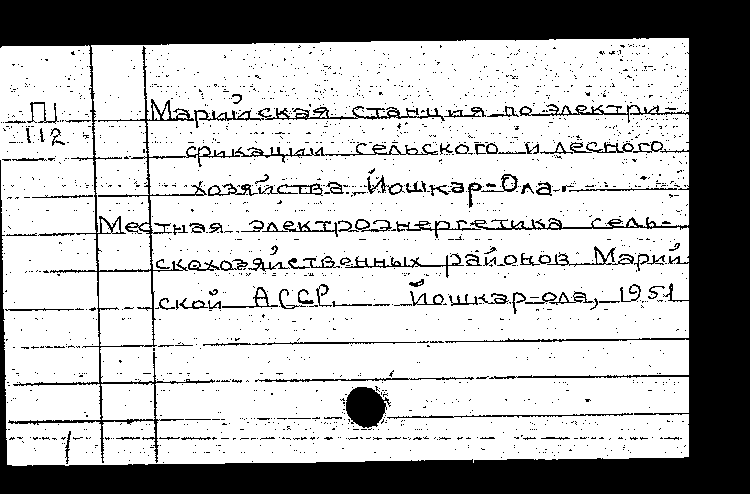 П1
112
Марийская станция по электри-
фикации сельского и лесного
хозяйства. Йошкар-Ола.
Местная электроэнергетика сель-
скохозяйственных районов Марий
ской АССР. Йошкар-ола, 1951